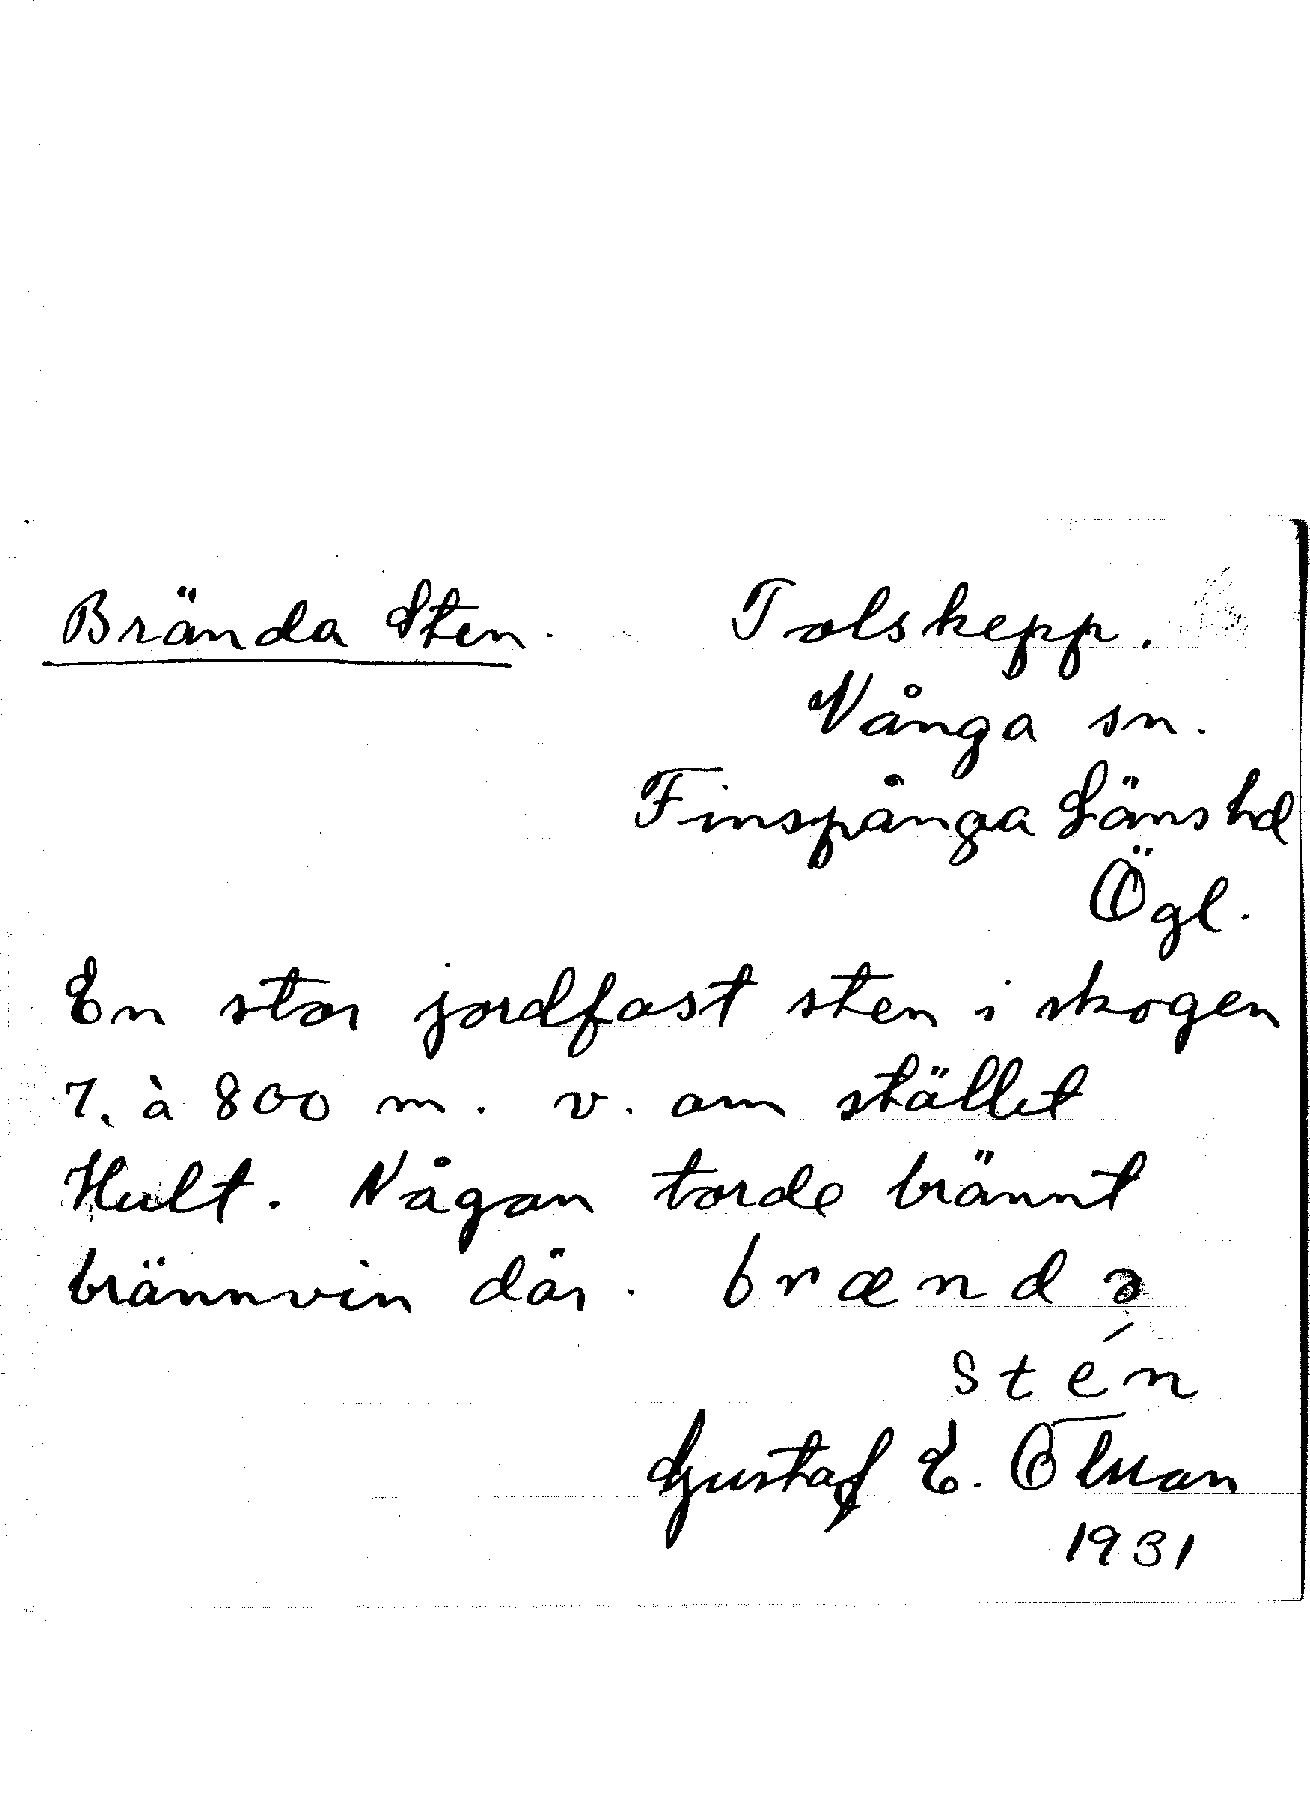 Brända Sten. Tolskepp.
Vånga sn.
Finspånga Läns hd
Ögl.
En stor jordfast sten i skogen
7. à 800 m. v. om stället
Hult. Någon torde brännt
brännvin där. brændə
stén
Gustaf E.
1931